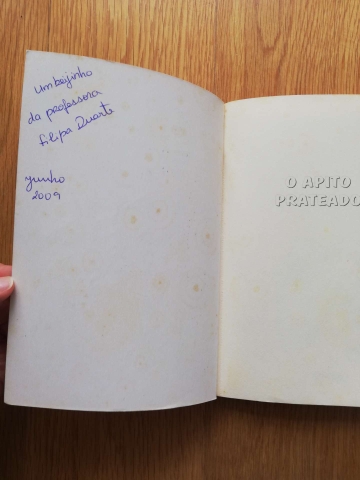 um beijinho
da professora
Filipa Duarte
junho
2009
O APITO
PRATEADO